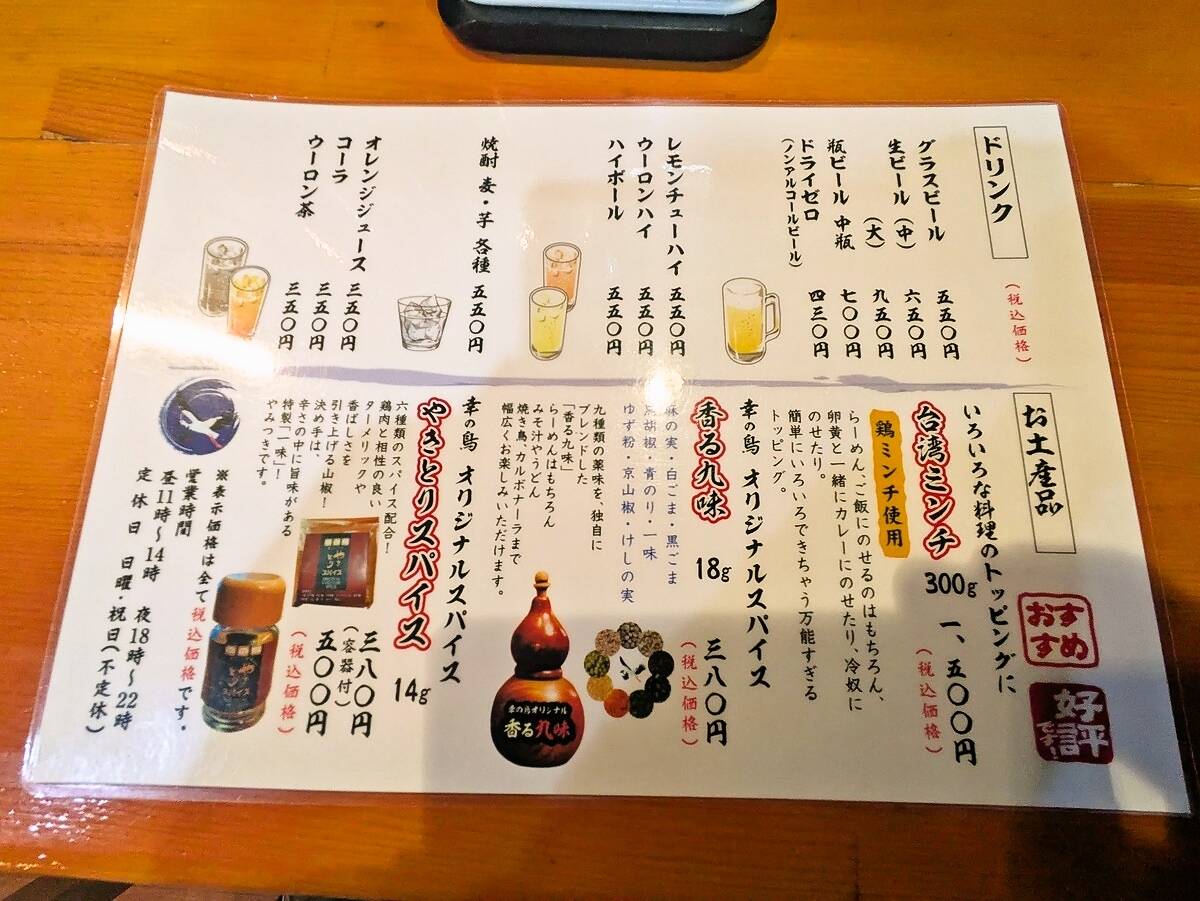 ドリンク
(税込価格)
グラスビール 五五〇円
生ビール(中) 六五〇円
(大) 九五〇円
瓶ビール 中瓶 七〇〇円
ドライゼロ 四三〇円
(ノンアルコールビール)
レモンチューハイ 五五〇円
ウーロンハイ 五五〇円
ハイボール 五五〇円
焼酎 麦・芋 各種 五五〇円
オレンジジュース 三五〇円
コーラ 三五〇円
ウーロン茶 三五〇円
お土産品
おすすめ
好評です!
いろいろな料理のトッピングに
台湾ミンチ 300g 一、五〇〇円
(税込価格)
鶏ミンチ使用
らーめん、ご飯にのせるのはもちろん、
卵黄と一緒にカレーにのせたり、冷奴に
のせたり。
簡単にいろいろできちゃう万能すぎる
トッピング。
幸の鳥 オリジナルスパイス
香る九味 18g 三八〇円
(税込価格)
麻の実・白ごま・黒ごま
黒胡椒・青のり・一味
ゆず粉・京山椒・けしの実
九種類の薬味を、独自に
ブレンドした
「香る九味」
らーめんはもちろん
みそ汁やうどん
焼き鳥、カルボナーラまで
幅広くお楽しみいただけます。
幸の鳥オリジナル
香る九味
幸の鳥 オリジナルスパイス
やきとりスパイス 14g 三八〇円
(容器付) 五〇〇円
(税込価格)
六種類のスパイス配合!
鶏肉と相性の良い
ターメリックや
香ばしさを
引き上げる山椒!
決め手は、
辛さの中に旨味がある
特製「一味」!
やみつきです。
やきとり
スパイス
やきとり
スパイス
※表示価格は全て税込価格です。
営業時間
昼11時~14時 夜18時~22時
定休日 日曜・祝日(不定休)